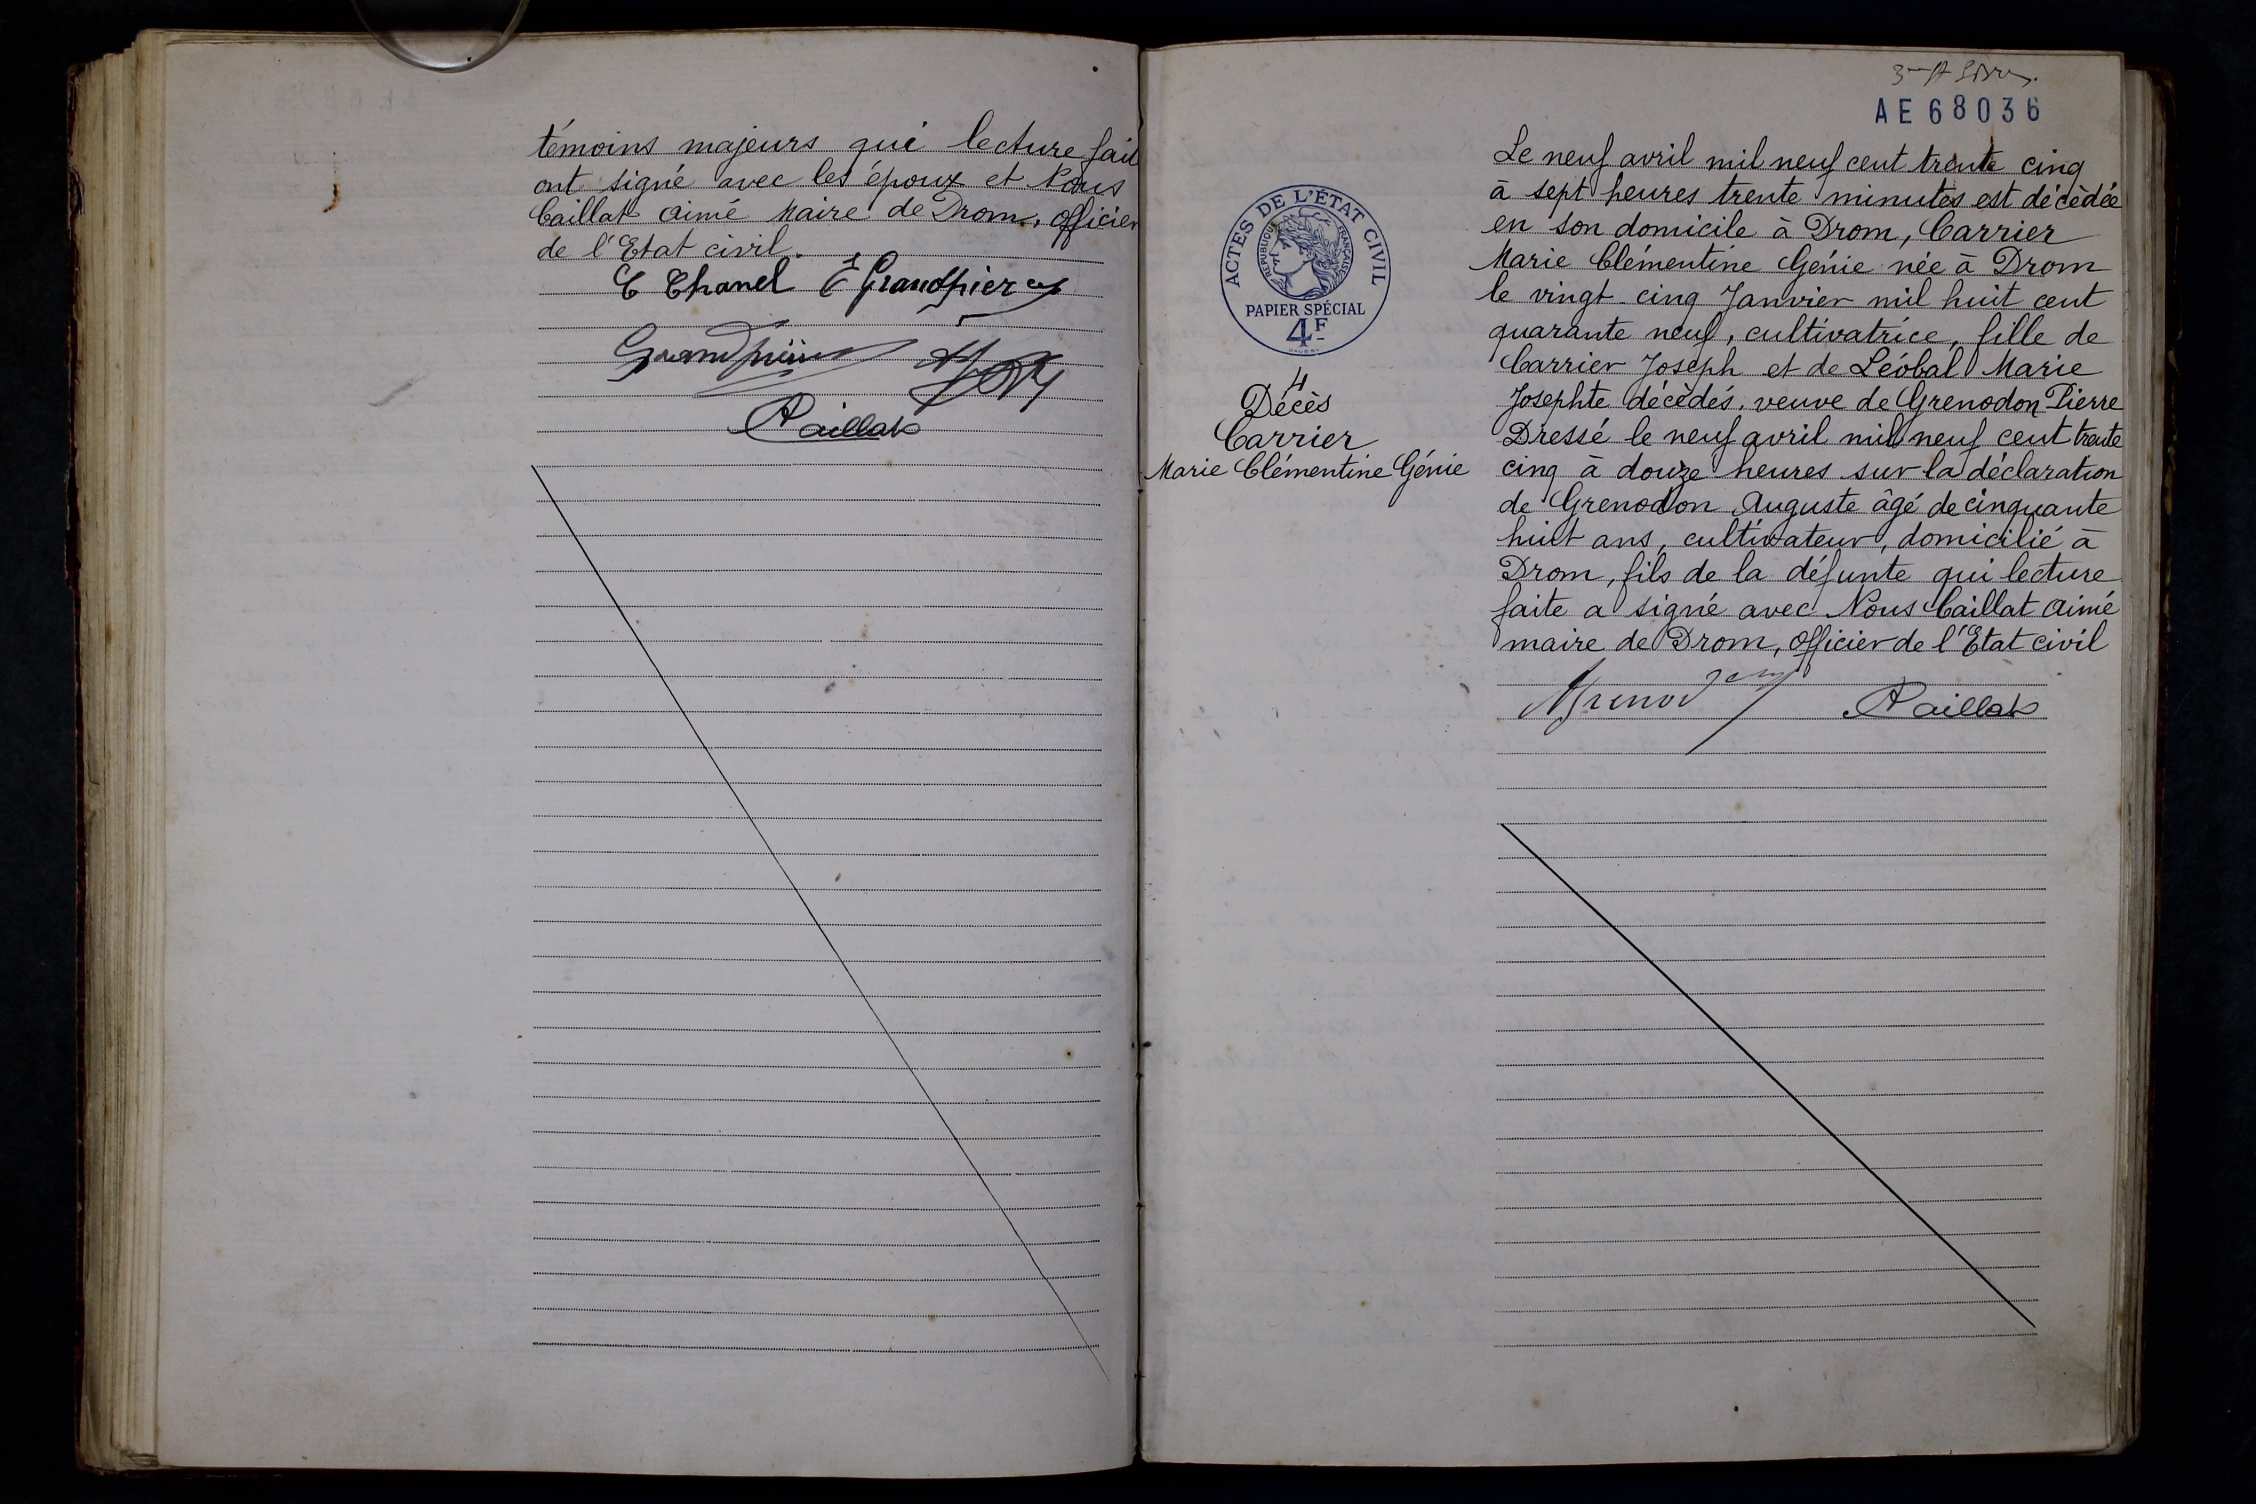 témoins majeurs qui lecture fait
ont signé avec les époux et Nous
Caillat Aimé Maire de Drom, officier
de l'Etat civil.
C Chanel E Grandpierre
Grandpierre
A Caillat
AE 68036
ACTES DE L'ÉTAT CIVIL
RÉPUBLIQUE FRANÇAISE
PAPIER SPÉCIAL
4F
4
Décès
Carrier
Marie Clémentine Génie
Le neuf avril mil neuf cent trente cinq
à sept heures trente minutes est décèdée
en son domicile à Drom, Carrier
Marie Clémentine Génie née à Drom
le vingt-cinq Janvier mil huit cent
quarante neuf, cultivatrice, fille de
Carrier Joseph et de Léobal Marie
Josephte décèdés, veuve de Grenodon Pierre
Dressé le neuf avril mil neuf cent trente
cinq à douze heures sur la déclaration
de Grenodon Auguste âgé de cinquante
huit ans, cultivateur, domicilié à
Drom, fils de la défunte qui lecture
faite a signé avec Nous Caillat Aimé
maire de Drom, Officier de l'Etat civil
A Grenodon A Caillat